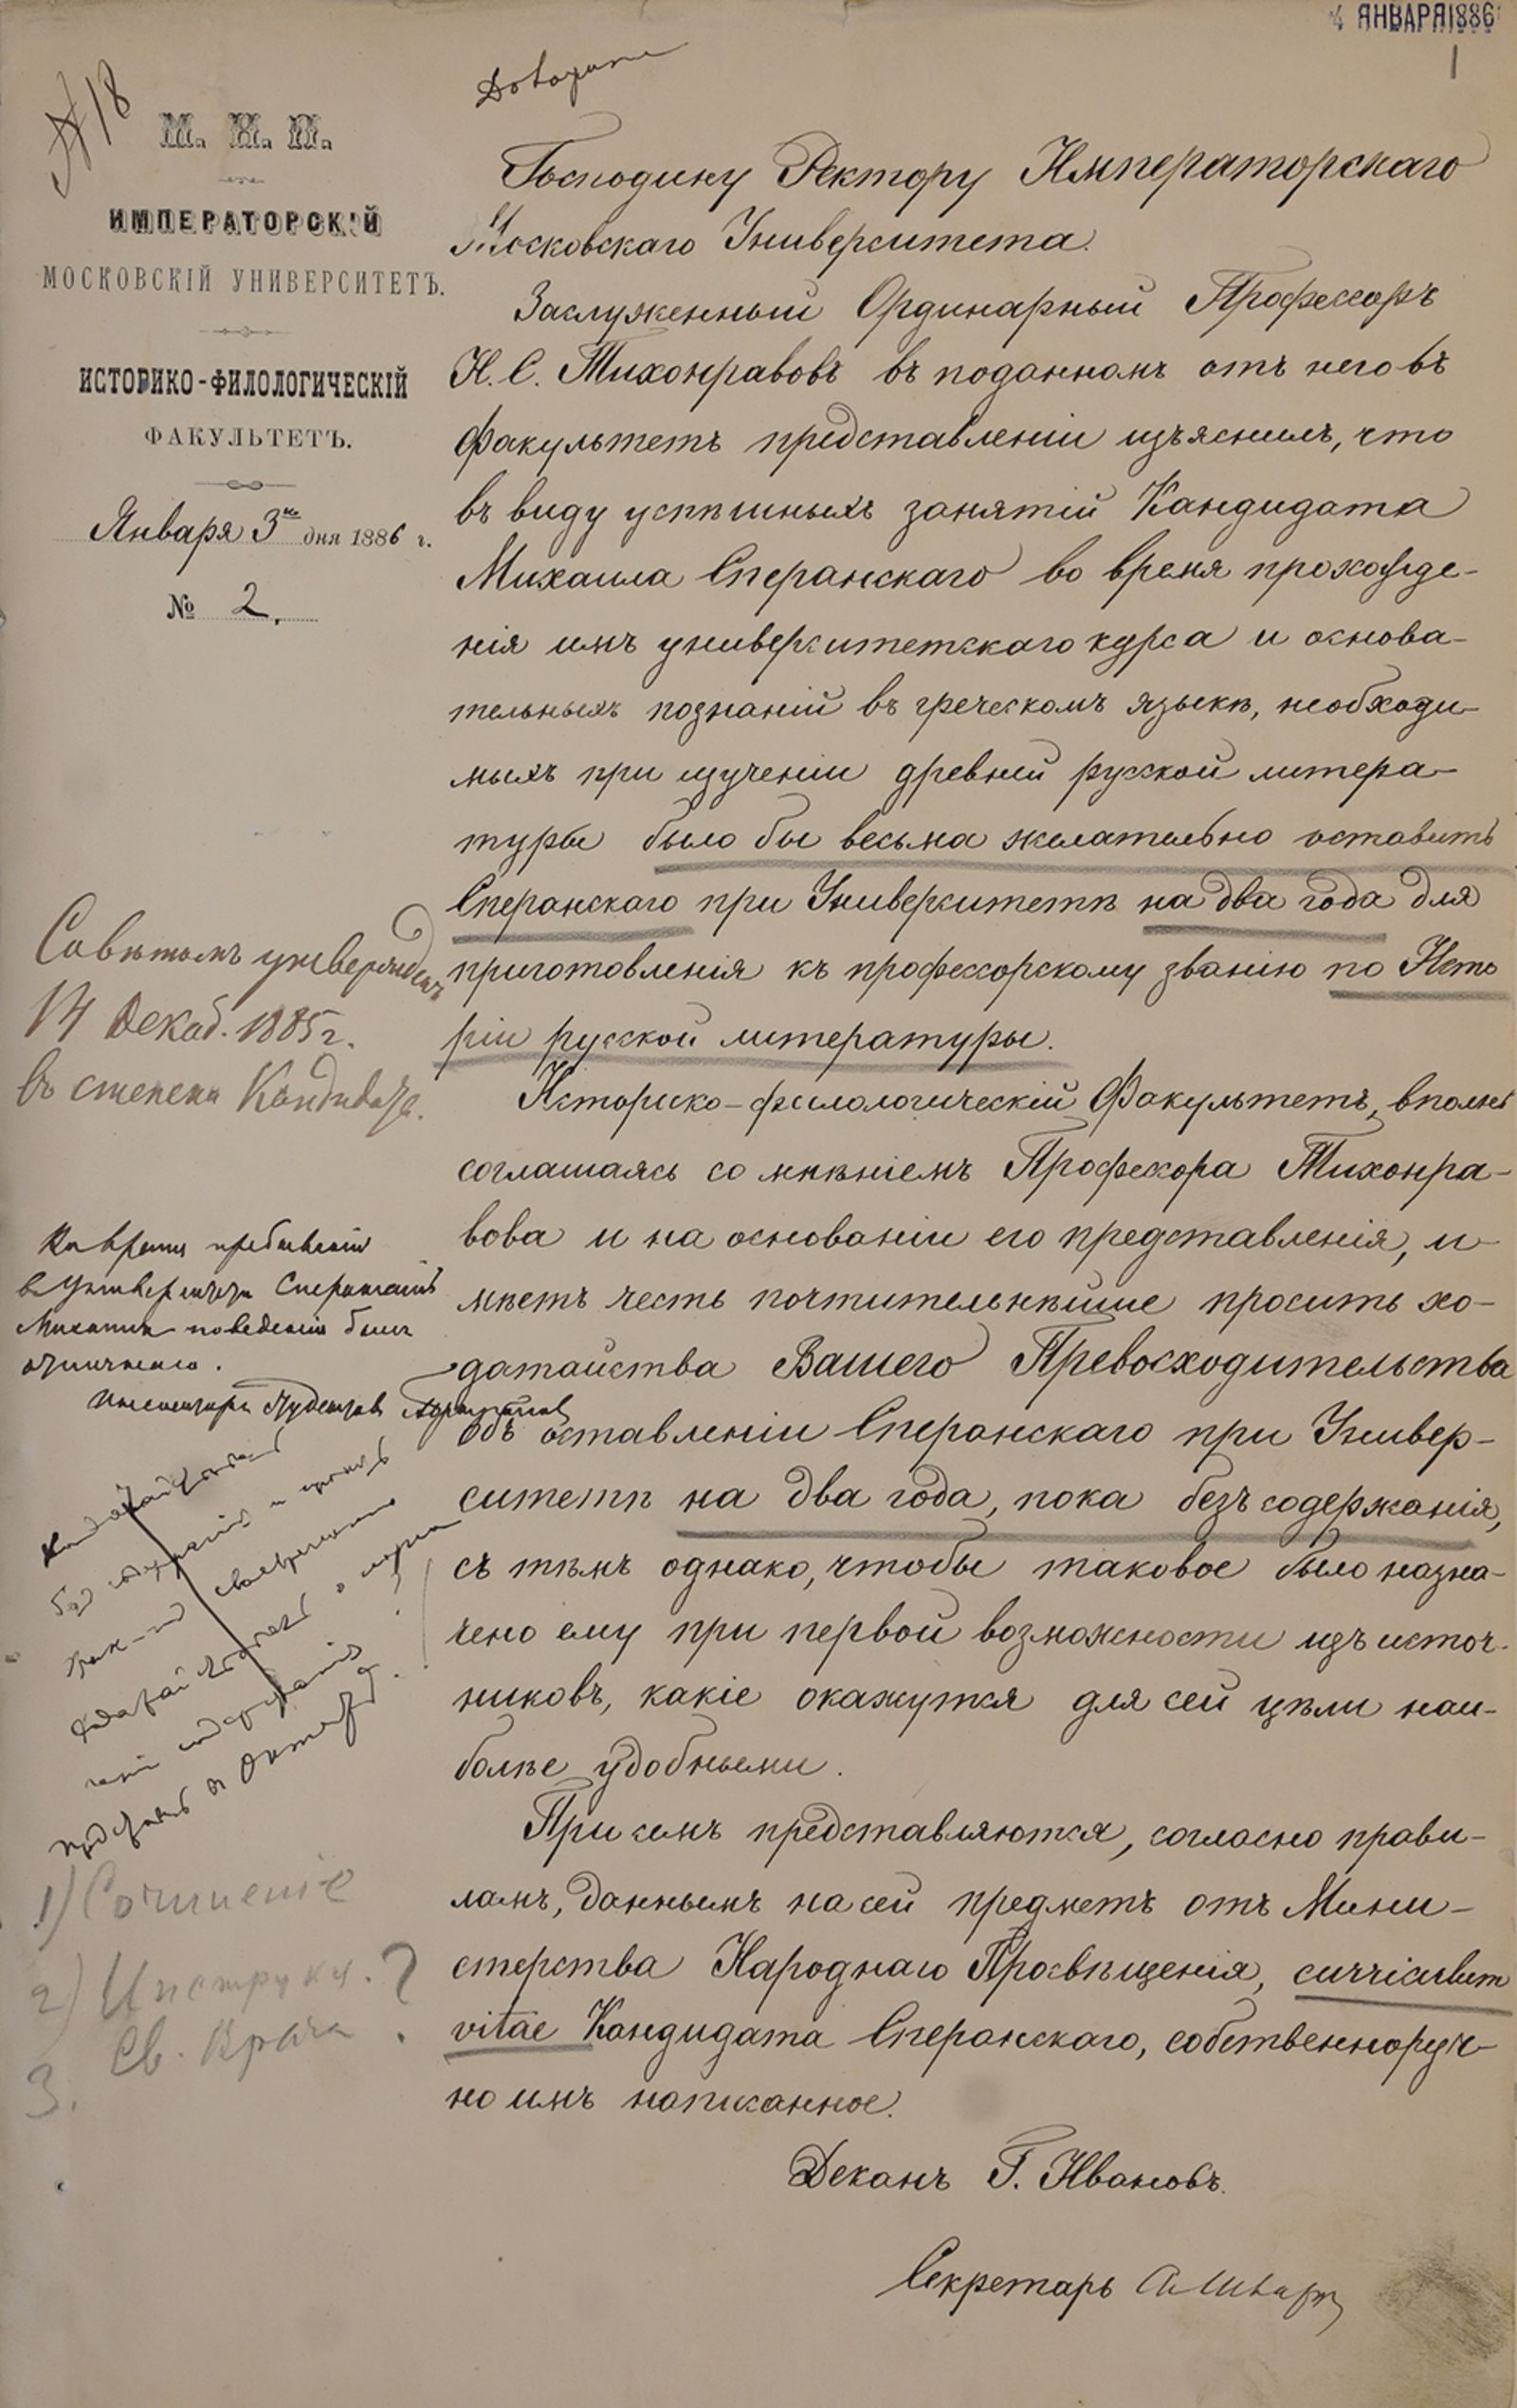 4 ЯНВАРЯ 1886
1
№ 18
М. Н. П.
ИМПЕРАТОРСКІЙ
МОСКОВСКІЙ УНИВЕРСИТЕТЪ.
ИСТОРИКО-ФИЛОЛОГИЧЕСКІЙ
ФАКУЛЬТЕТЪ.
Января 3го дня 1886 г.
№ 2.
Господину Ректору Императорскаго
Московскаго Университета.
Заслуженный Ординарный Профессоръ
Н. С. Тихонравовъ въ поданномъ отъ него въ
Факультетъ представленіи изъяснилъ, что
въ виду успѣшныхъ занятій Кандидата
Михаила Сперанскаго во время прохожде-
нія имъ университетскаго курса и основа-
тельныхъ познаній въ греческомъ языкѣ, необходи-
мыхъ при изученіи древней русской литера-
туры было бы весьма желательно оставить
Сперанскаго при Университетѣ на два года для
приготовленія къ профессорскому званію по Исто
ріи русской литературы.
Историко-филологическій Факультетъ, вполнѣ
соглашаясь со мнѣніемъ Профессора Тихонра-
вова и на основаніи его представленія, и-
мѣетъ честь почтительнѣйше просить хо-
датайства Вашего Превосходительства
объ оставленіи Сперанскаго при Универ-
ситетѣ на два года, пока безъ содержанія,
съ тѣмъ однако, чтобы таковое было назна-
чено ему при первой возможности изъ источ-
никовъ, какіе окажутся для сей цѣли наи-
болѣе удобными.
При семъ представляются, согласно прави-
ламъ, даннымъ на сей предметъ отъ Мини-
стерства Народнаго Просвѣщенія, curriculum
vitae Кандидата Сперанскаго, собственноруч-
но имъ написанное.
Деканъ Г. Ивановъ.
Секретарь А. Шварц
Совѣтомъ университ
14 Декаб. 1885 г.
въ степени Кандидата.
Во время пребыванія
въ Университетѣ Сперанскій
Михаилъ поведенія былъ
отличнаго.
Инспекторъ Студентовъ
1) Сочиненіе
2) Инструкц. ?
3. Св. Врача.